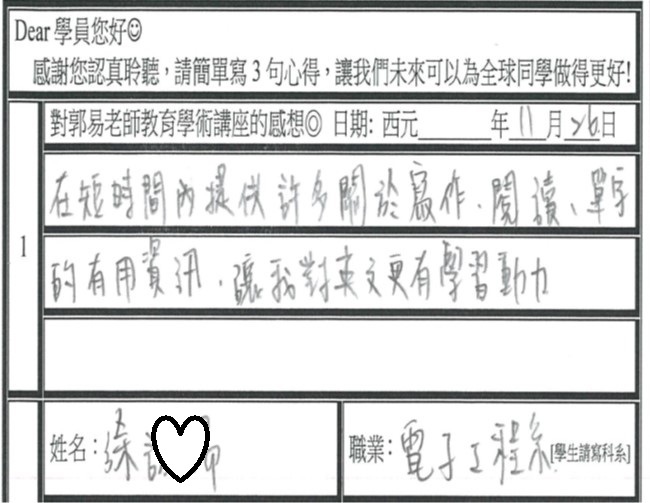 Dear 學員您好☺
感謝您認真聆聽，請簡單寫 3 句心得，讓我們未來可以為全球同學做得更好!
1
對郭易老師教育學術講座的感想◎ 日期: 西元______年11月26日
在短時間內提供許多關於寫作、閱讀、單字
的有用資訊，讓我對英文更有學習動力
姓名：
職業：電子工程系[學生請寫科系]